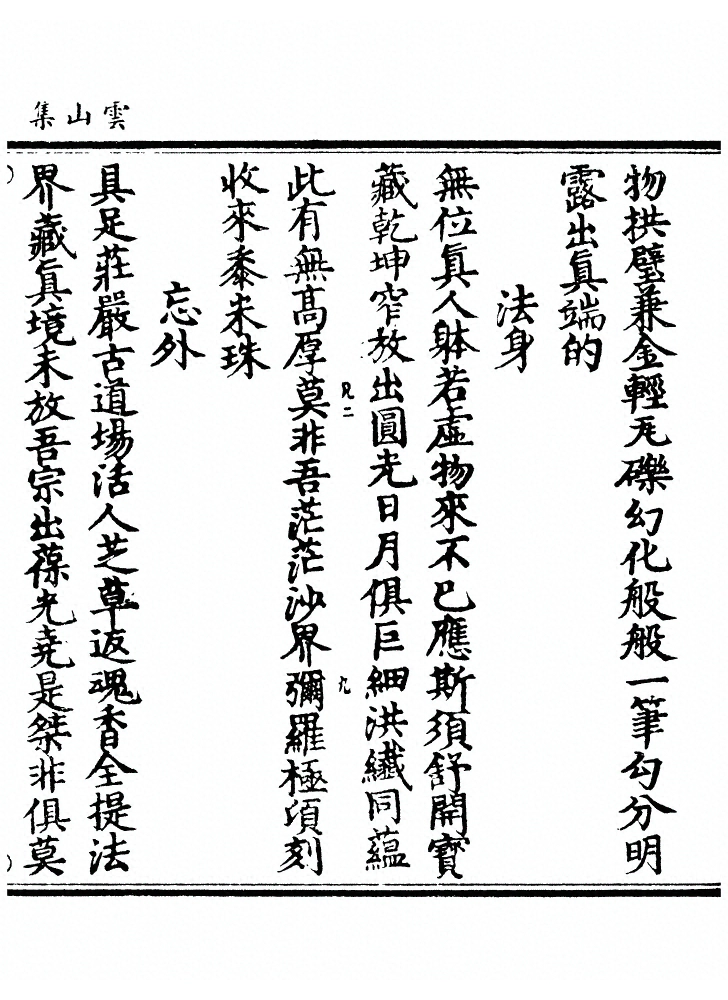 雲山集
物拱璧兼金輕瓦礫幻化般般一筆勾分明
露出眞端的
法身
無位眞人躰若虛物來不已應斯須舒開寶
藏乾坤窄放出圓光日月俱巨細洪纖同蘊
此有無高厚莫非吾茫茫沙界彌羅極頃刻
收來黍米珠
忘外
具足莊嚴古道場活人芝草返魂香全提法
界藏眞境未放吾宗出葆光堯是桀非俱莫